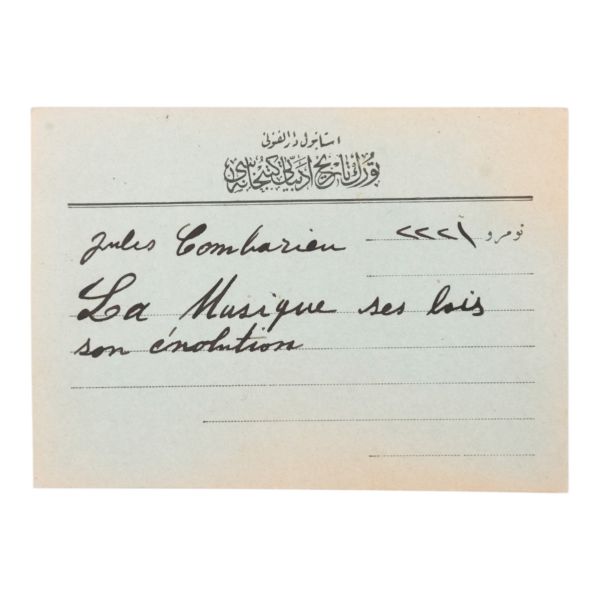 استانبول دار الفنونی
تورك تاریخ ادبیاتی كتبخانه سی
نومرو ٢٢٢١
Jules Combarieu
La Musique ses lois
son évolution